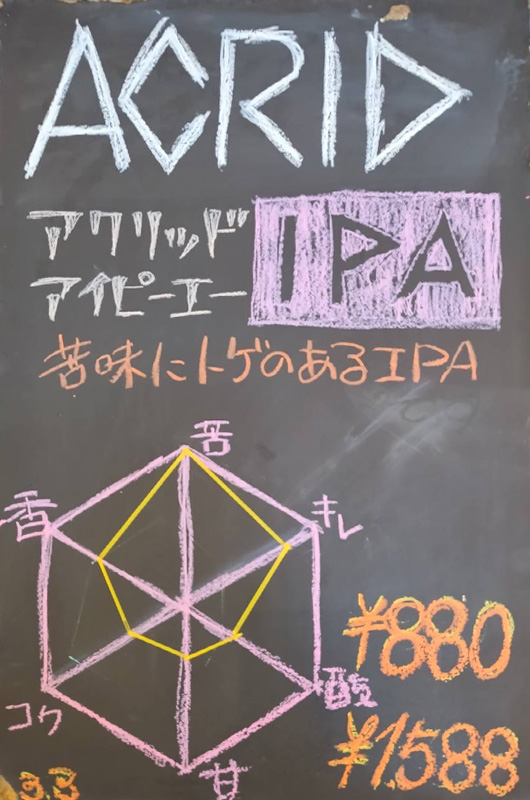 ACRID
アクリッド
アイピーエー
IPA
苦味にトゲのあるIPA
苦
香
キレ
コク
酸
甘
¥880
¥1588
3.3